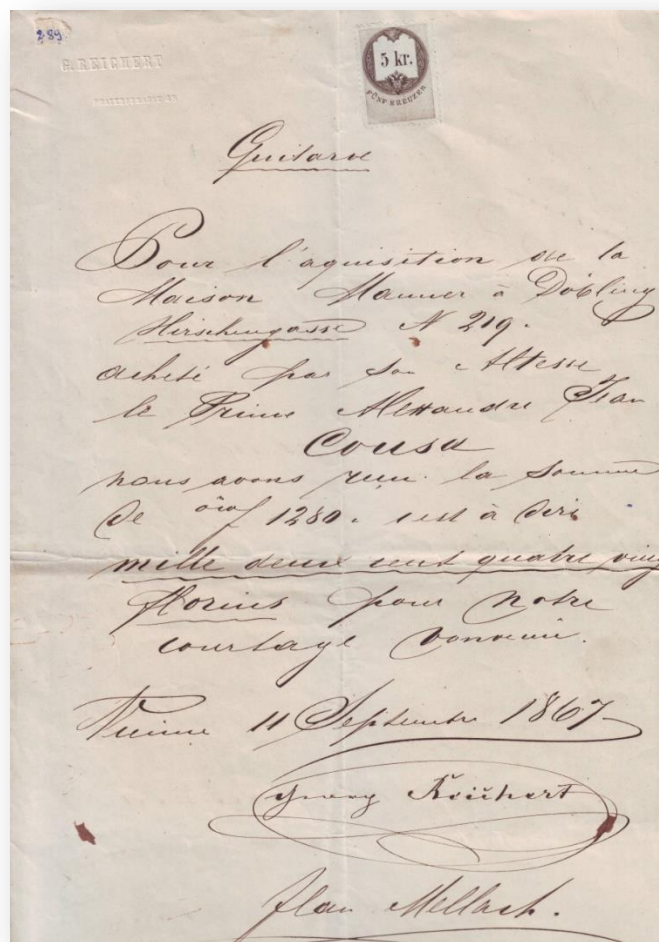 289
G. REICHERT
5 kr.
FÜNF KREUZER
Quitance
Pour l'aquisition de la
Maison Manner à Döbling
Hirschengasse N 219.
acheté par son Altesse
le Prince Alexandre Jean
Cousa
nous avons reçu la somme
de öwf 1280. c'est à dire
mille deux cent quatre ving
florins pour notre
courtage convenu.
Vienne 11 Septembre 1867
Georg Reichert
Jean Mellach.